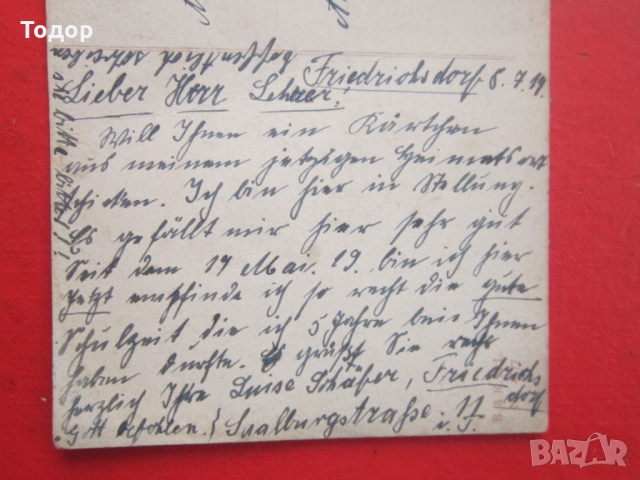 Todor
Friedrichsdorf 8. 7. 19.
Lieber Herr Lehrer,
Will Ihnen ein Kärtchen
aus meinem jetzigen Heimatsort
schicken. Ich bin hier in Stellung.
Es gefällt mir hier sehr gut
Seit dem 17 Mai. 19. bin ich hier
Jetzt empfinde ich so recht die gute
Schulzeit die ich 5 Jahre bei Ihnen
haben durfte. Es grüßt Sie recht
herzlich Ihre Luise Schäfer, Friedrichs
dorf
Gott befohlen. Saalburgstraße. 17
bazar.bg